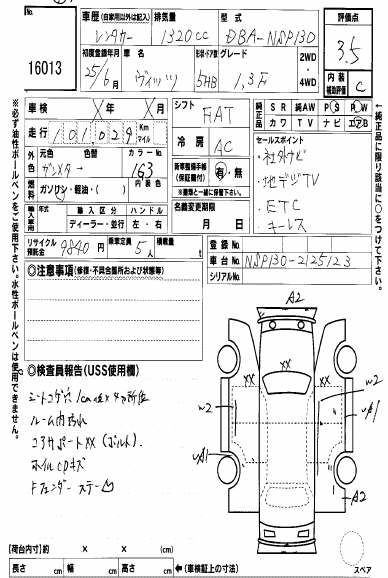 16013
車歴(自家用以外は記入)
レンタカー
排気量
1320cc
型式
DBA-NSP130
評価点
3.5
初度登録年月
25/6月
車名
ヴィッツ
形状・ドア数
5HB
グレード
1.3F
2WD
・
4WD
内装
補助評価
C
車検
X年X月
シフト
FAT
純正品
SR 純AW PS PW
カワ TV ナビ エアB
走行
101,029 Km
マイル
冷房
AC
セールスポイント
・社外ナビ
・地デジTV
・ETC
・キーレス
外色
元色
色替
カラーNo.
ガンメタ→
1G3
燃料
ガソリン・軽油・( )
内装色
新車整備手帳
(保証書付)
有・無
※書類と一緒に保管下さい。
輸入車
年式
輸入区分
ハンドル
ディーラー・並行
左・右
名義変更期限
月 日
リサイクル預託金
9840円
乗車定員
5人
積載量
t
登録No.
車台No.
NSP130-2125123
シリアルNo.
◎注意事項(修復・不具合箇所および状態等)
◎検査員報告(USS使用欄)
シートコゲ穴1cm位×4ヶ所位
ルーム内汚れ
コアサポートXX(ボルト)
ホイルCPキズ
A2
XX
XX
W2
W2
UA1
UA1
A2
スペア
[荷台内寸]約 × × (cm)
長さ cm 幅 cm 高さ cm
◀(車検証上の寸法)
※必ず油性ボールペンをご使用下さい。水性ボールペンは使用できません。
←純正品に限り該当に○をつけて下さい。